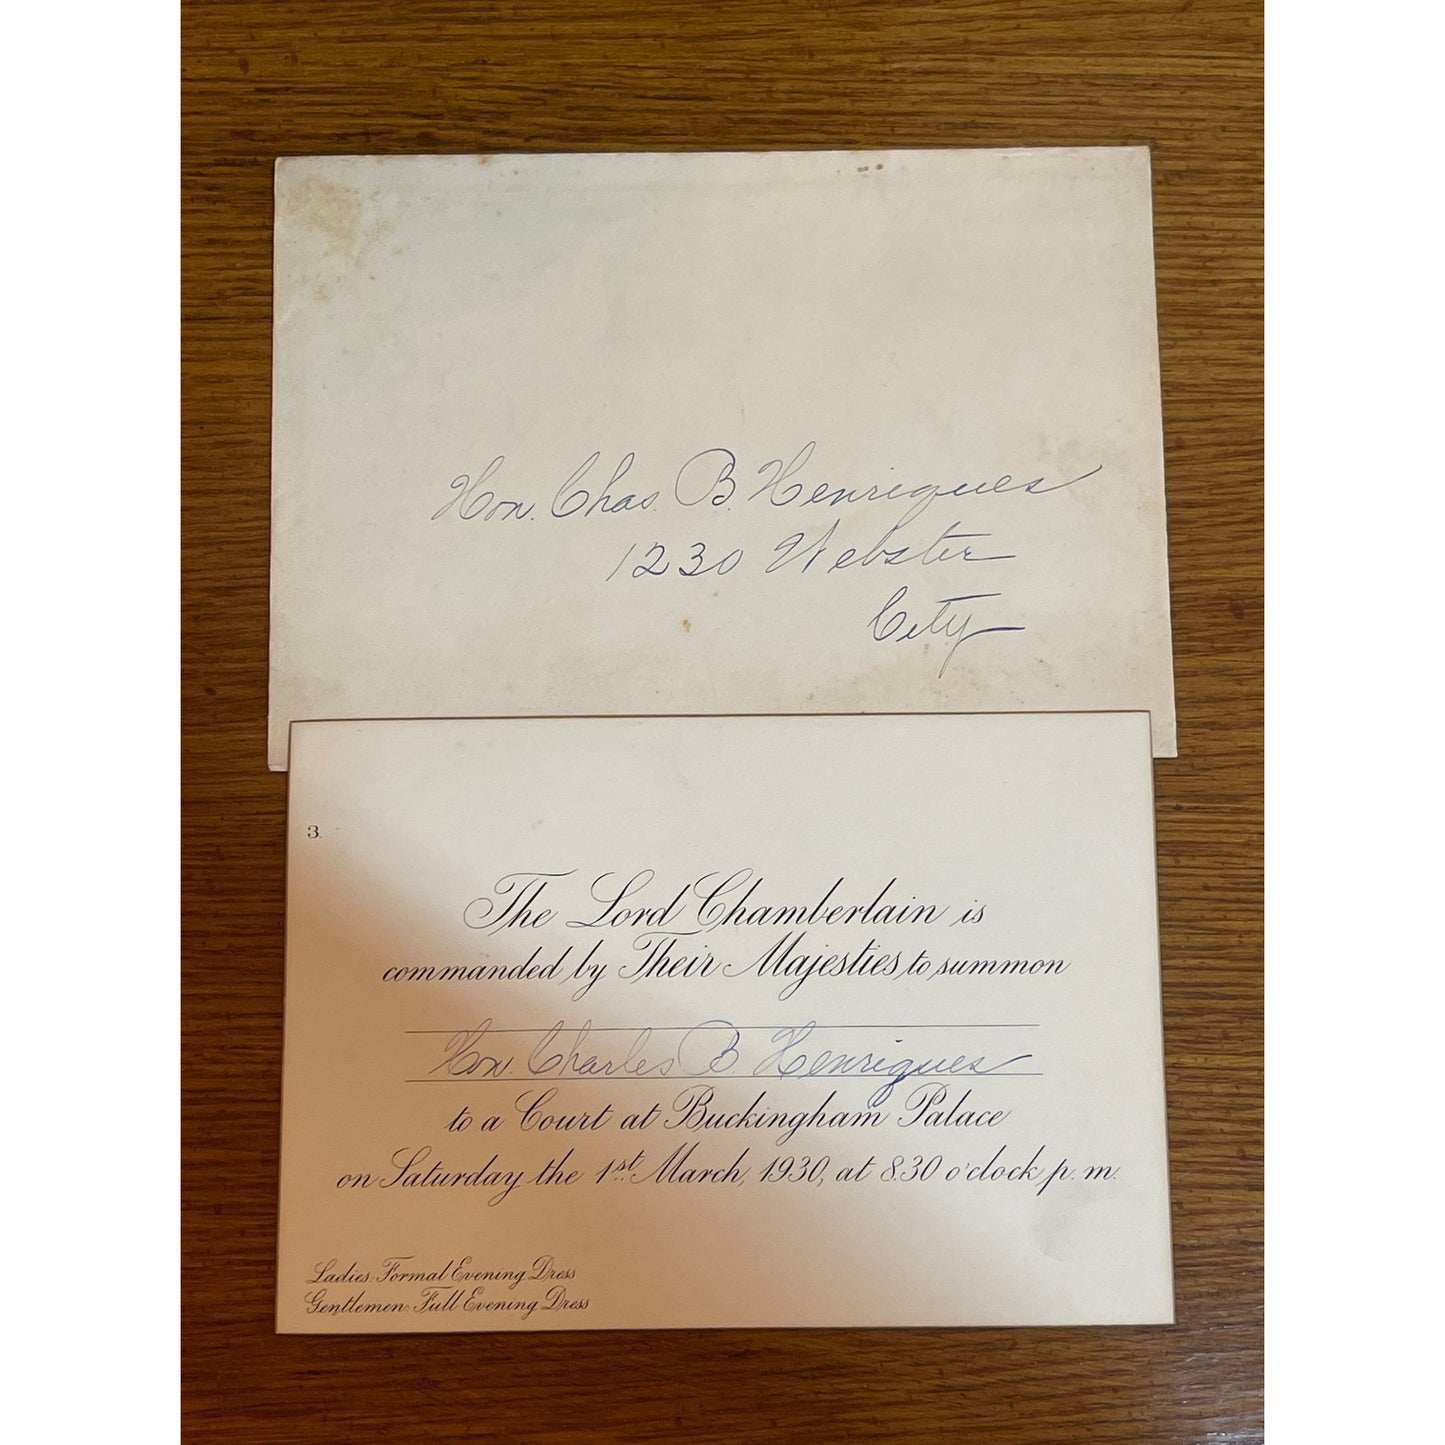 Hon. Chas. B. Henriques
1230 Webster
City
3.
The Lord Chamberlain is
commanded by Their Majesties to summon
Hon. Charles B. Henriques
to a Court at Buckingham Palace
on Saturday the 1st March, 1930, at 8.30 o'clock p. m.
Ladies: Formal Evening Dress
Gentlemen: Full Evening Dress